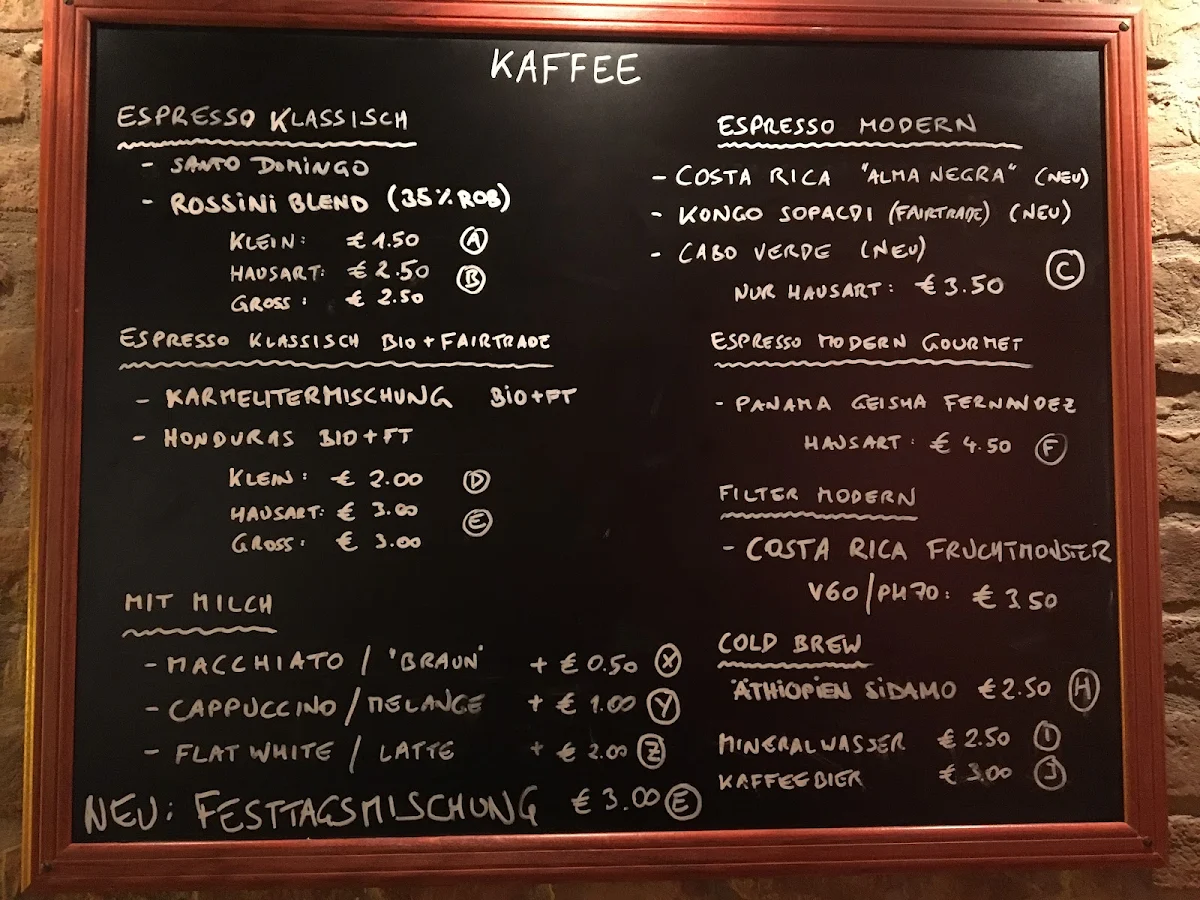 KAFFEE
ESPRESSO KLASSISCH
- SANTO DOMINGO
- ROSSINI BLEND (35% ROB)
KLEIN: € 1.50 A
HAUSART: € 2.50 B
GROSS: € 2.50
ESPRESSO KLASSISCH BIO + FAIRTRADE
- KARMELITERMISCHUNG BIO+FT
- HONDURAS BIO+FT
KLEIN: € 2.00 D
HAUSART: € 3.00 E
GROSS: € 3.00
MIT MILCH
- MACCHIATO / "BRAUN" + € 0.50 X
- CAPPUCCINO / MELANGE + € 1.00 Y
- FLAT WHITE / LATTE + € 2.00 Z
NEU: FESTTAGSMISCHUNG € 3.00 E
ESPRESSO MODERN
- COSTA RICA "ALMA NEGRA" (NEU)
- KONGO SOPACDI (FAIRTRADE) (NEU)
- CABO VERDE (NEU)
NUR HAUSART: € 3.50 C
ESPRESSO MODERN GOURMET
- PANAMA GEISHA FERNANDEZ
HAUSART: € 4.50 F
FILTER MODERN
- COSTA RICA FRUCHTMONSTER
V60/PH70: € 3.50
COLD BREW
ÄTHIOPIEN SIDAMO € 2.50 H
MINERALWASSER € 2.50 I
KAFFEEBIER € 3.00 J